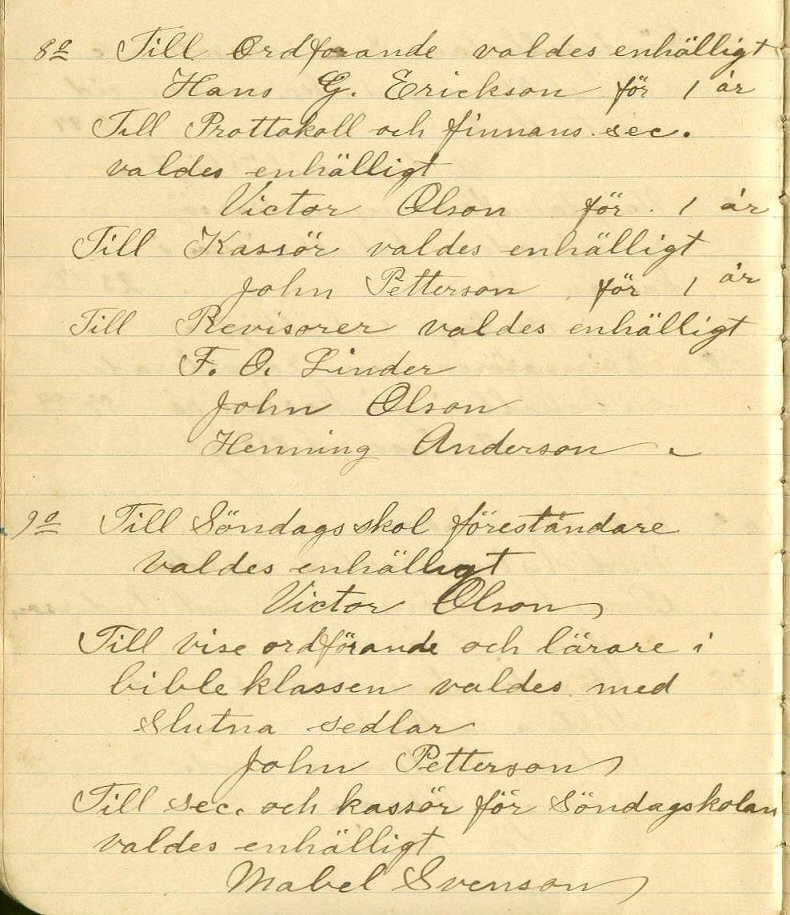 8o Till Ordforande valdes enhälligt
Hans G. Erickson för 1 år
Till Prottokoll och finnans. sec.
valdes enhälligt
Victor Olson för 1 år
Till Kassör valdes enhälligt
John Petterson för 1 år
Till Revisorer valdes enhälligt
F. O. Linder
John Olson
Henning Anderson
9o Till Söndags skol föreståndare
valdes enhälligt
Victor Olson
Till vise ordförande och lärare i
bible klassen valdes med
slutna sedlar
John Petterson
Till sec. och kassör för Söndagskolan
valdes enhälligt
Mabel Svenson